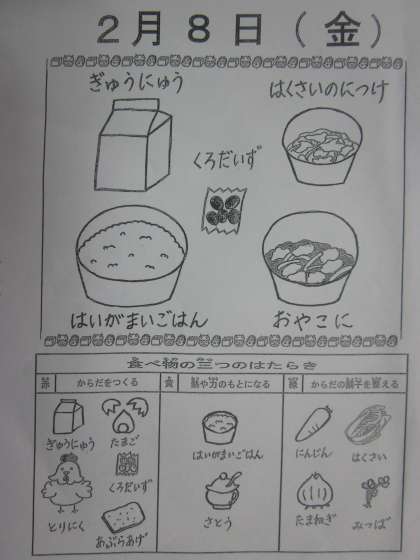 2月8日(金)
ぎゅうにゅう
はくさいのにつけ
くろだいず
はいがまいごはん
おやこに
食べ物の三つのはたらき
赤 からだをつくる
黄 熱や力のもとになる
緑 からだの調子を整える
ぎゅうにゅう
たまご
くろだいず
とりにく
あぶらあげ
はいがまいごはん
さとう
にんじん
はくさい
たまねぎ
みつば